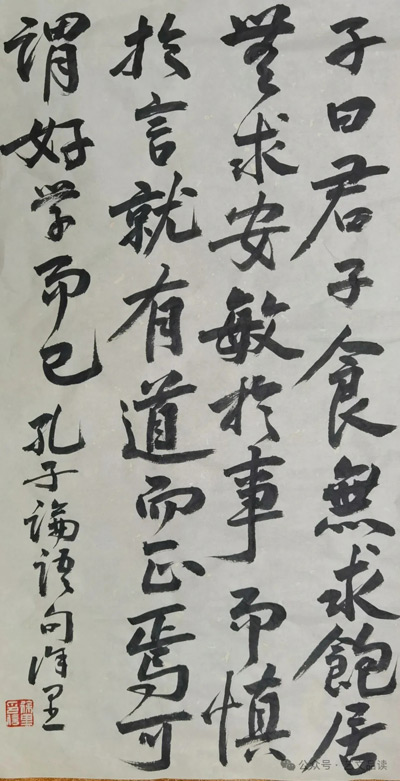 子曰君子食無求飽居
無求安敏於事而慎
於言就有道而正焉可
謂好学而已 孔子論語句
公众号